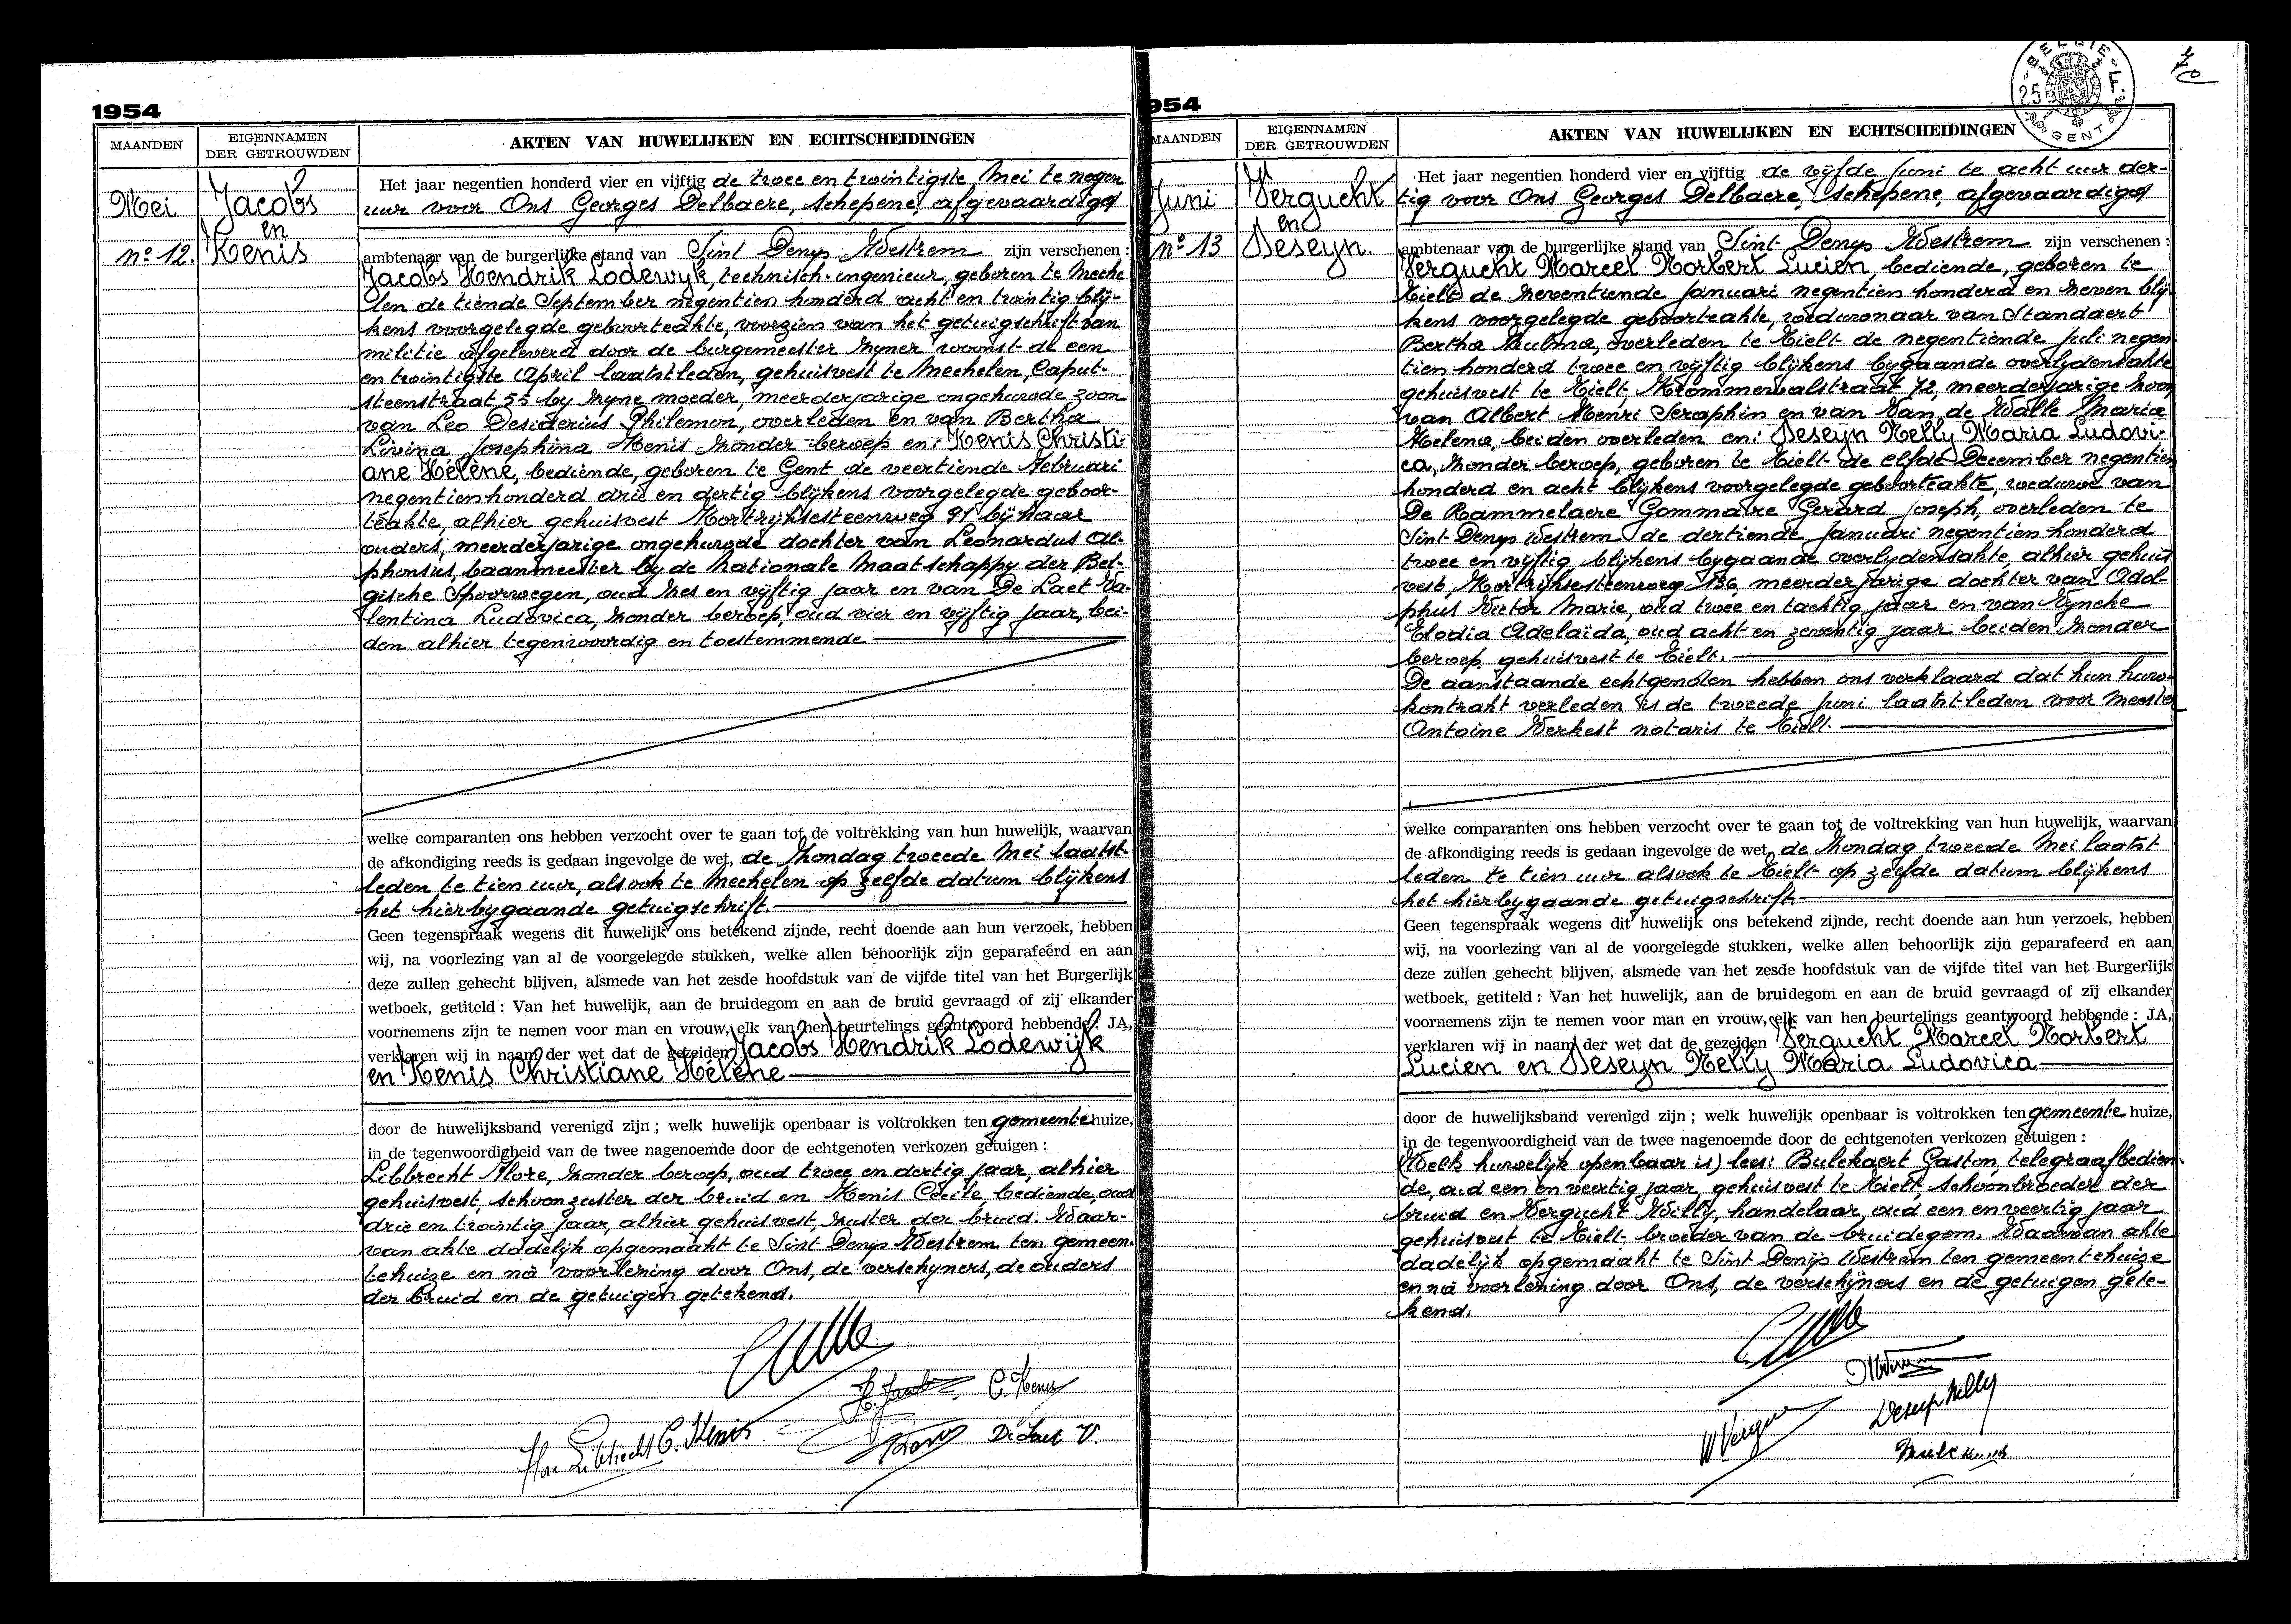 1954
MAANDEN
EIGENNAMEN
DER GETROUWDEN
AKTEN VAN HUWELIJKEN EN ECHTSCHEIDINGEN
Mei
no 12.
Jacobs
en
Kenis
Het jaar negentien honderd vier en vijftig de twee en twintigste Mei te negen
uur voor Ons Georges Delbaere, schepene, afgevaardigd
ambtenaar van de burgerlijke stand van Sint Denys Westrem zijn verschenen :
Jacobs Hendrik Lodewijk, technisch-ingenieur, geboren te Meche
len de tiende September negentien honderd acht en twintig blij-
kens voorgelegde geboorteakte, voorzien van het getuigschrift van
militie afgeleverd door de burgemeester zyner woonst de een
en twintigste April laatstleden, gehuisvest te Mechelen, Caput-
steenstraat 55 by zyne moeder, meerderjarige ongehuwde zoon
van Leo Desiderius Philemon, overleden en van Bertha
Livina Josephina Kenis zonder beroep en: Kenis Christi-
ane Hélène, bediende, geboren te Gent de veertiende Februari
negentienhonderd drie en dertig blijkens voorgelegde geboor-
teakte, alhier gehuisvest Kortrijksesteenweg 91 bij haar
ouders, meerderjarige ongehuwde dochter van Leonardus Al-
phonsus, baanmeester by de Nationale Maatschappy der Bel-
gische Spoorwegen, oud zes en vijftig jaar en van De Laet Va-
lentina Ludovica, zonder beroep, oud vier en vijftig jaar, bei-
den alhier tegenwoordig en toestemmende
welke comparanten ons hebben verzocht over te gaan tot de voltrekking van hun huwelijk, waarvan
de afkondiging reeds is gedaan ingevolge de wet, de Zondag tweede Mei laatst-
leden te tien uur, alsook te Mechelen op zelfde datum blijkens
het hierbygaande getuigschrift.
Geen tegenspraak wegens dit huwelijk ons betekend zijnde, recht doende aan hun verzoek, hebben
wij, na voorlezing van al de voorgelegde stukken, welke allen behoorlijk zijn geparafeerd en aan
deze zullen gehecht blijven, alsmede van het zesde hoofdstuk van de vijfde titel van het Burgerlijk
wetboek, getiteld : Van het huwelijk, aan de bruidegom en aan de bruid gevraagd of zij elkander
voornemens zijn te nemen voor man en vrouw, elk van hen beurtelings geantwoord hebbende : JA,
verklaren wij in naam der wet dat de gezeiden Jacobs Hendrik Lodewijk
en Kenis Christiane Hélène
door de huwelijksband verenigd zijn ; welk huwelijk openbaar is voltrokken ten gemeentehuize,
in de tegenwoordigheid van de twee nagenoemde door de echtgenoten verkozen getuigen :
Libbrecht Flore, zonder beroep, oud twee en dertig jaar, alhier
gehuisvest, schoonzuster der bruid en Kenis Cécile, bediende, oud
drie en twintig jaar, alhier gehuisvest, zuster der bruid. Waar-
van akte dadelijk opgemaakt te Sint Denys Westrem ten gemeen-
tehuize en na voorlezing door Ons, de verschyners, de ouders
der bruid en de getuigen getekend.
H. Jacobs C. Kenis
Flore Libbrecht C. Kenis De Laet V.
954
MAANDEN
EIGENNAMEN
DER GETROUWDEN
AKTEN VAN HUWELIJKEN EN ECHTSCHEIDINGEN
BELGIE
25 F.
GENT
70
Juni
no 13
Vergucht
en
Deseyn.
Het jaar negentien honderd vier en vijftig de vijfde Juni te acht uur der-
tig voor Ons Georges Delbaere, schepene, afgevaardigd
ambtenaar van de burgerlijke stand van Sint-Denys Westrem zijn verschenen :
Vergucht Marcel Norbert Lucien, bediende, geboren te
Tielt de zeventiende Januari negentien honderd en zeven blij-
kens voorgelegde geboorteakte, weduwnaar van Standaert
Bertha Zulma, overleden te Tielt de negentiende Juli negen
tien honderd twee en vijftig blijkens bygaande overlydensakte
gehuisvest te Tielt, Krommewalstraat 72, meerderjarige zoon
van Albert Henri Seraphin en van Van de Walle Maria
Helena, beiden overleden en: Deseyn Nelly Maria Ludovi-
ca, zonder beroep, geboren te Tielt de elfde December negentien
honderd en acht blijkens voorgelegde geboorteakte, weduwe van
De Rammelaere Gommaire Gerard Joseph, overleden te
Sint Denys Westrem de dertiende Januari negentien honderd
twee en vijftig blijkens bygaande overlydensakte, alhier gehuis
vest, Kortrijksesteenweg 136, meerderjarige dochter van Adol-
phus Victor Marie, oud twee en tachtig jaar en van Vyncke
Elodia Adelaïda, oud acht en zeventig jaar beiden zonder
beroep gehuisvest te Tielt.
De aanstaande echtgenoten hebben ons verklaard dat hun huw.
kontrakt verleden is de tweede Juni laatstleden voor Meester
Antoine Verkest notaris te Tielt.
welke comparanten ons hebben verzocht over te gaan tot de voltrekking van hun huwelijk, waarvan
de afkondiging reeds is gedaan ingevolge de wet, de Zondag tweede Mei laatst
leden te tien uur alsook te Tielt op zelfde datum blijkens
het hierbygaande getuigschrift.
Geen tegenspraak wegens dit huwelijk ons betekend zijnde, recht doende aan hun verzoek, hebben
wij, na voorlezing van al de voorgelegde stukken, welke allen behoorlijk zijn geparafeerd en aan
deze zullen gehecht blijven, alsmede van het zesde hoofdstuk van de vijfde titel van het Burgerlijk
wetboek, getiteld : Van het huwelijk, aan de bruidegom en aan de bruid gevraagd of zij elkander
voornemens zijn te nemen voor man en vrouw, elk van hen beurtelings geantwoord hebbende : JA,
verklaren wij in naam der wet dat de gezeiden Vergucht Marcel Norbert
Lucien en Deseyn Nelly Maria Ludovica
door de huwelijksband verenigd zijn ; welk huwelijk openbaar is voltrokken ten gemeente huize,
in de tegenwoordigheid van de twee nagenoemde door de echtgenoten verkozen getuigen :
(Welk huwelijk openbaar is) lees: Bulckaert Gaston, telegraafbedien-
de, oud een en veertig jaar, gehuisvest te Tielt, schoonbroeder der
bruid en Vergucht Willy, handelaar, oud een en veertig jaar
gehuisvest te Tielt broeder van de bruidegom. Waarvan akte
dadelijk opgemaakt te Sint Denijs Westrem ten gemeentehuize
en na voorlezing door Ons, de verschijners en de getuigen gete-
kend.
Deseyn Nelly